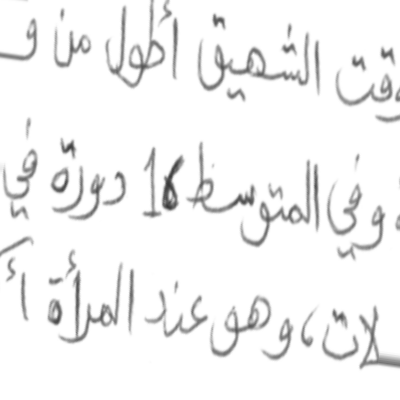 وقت الشهيق أطول من و
وفي المتوسط 16 دورة في
لات، وهو عند المرأة أ